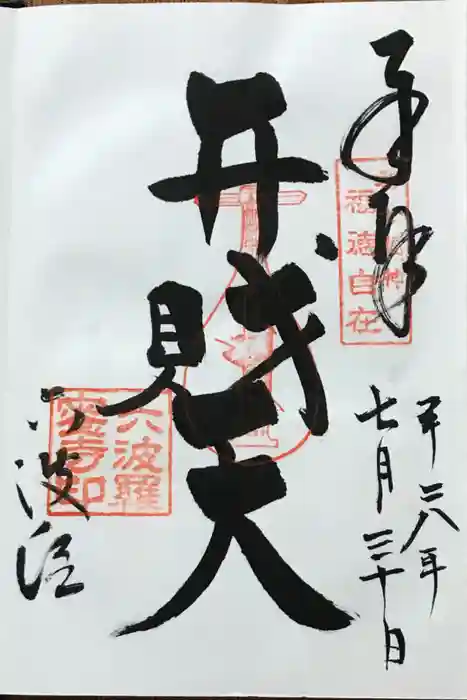 奉拝
福徳自在
平二八年
七月三十日
弁財天
六波羅
蜜寺印
六波